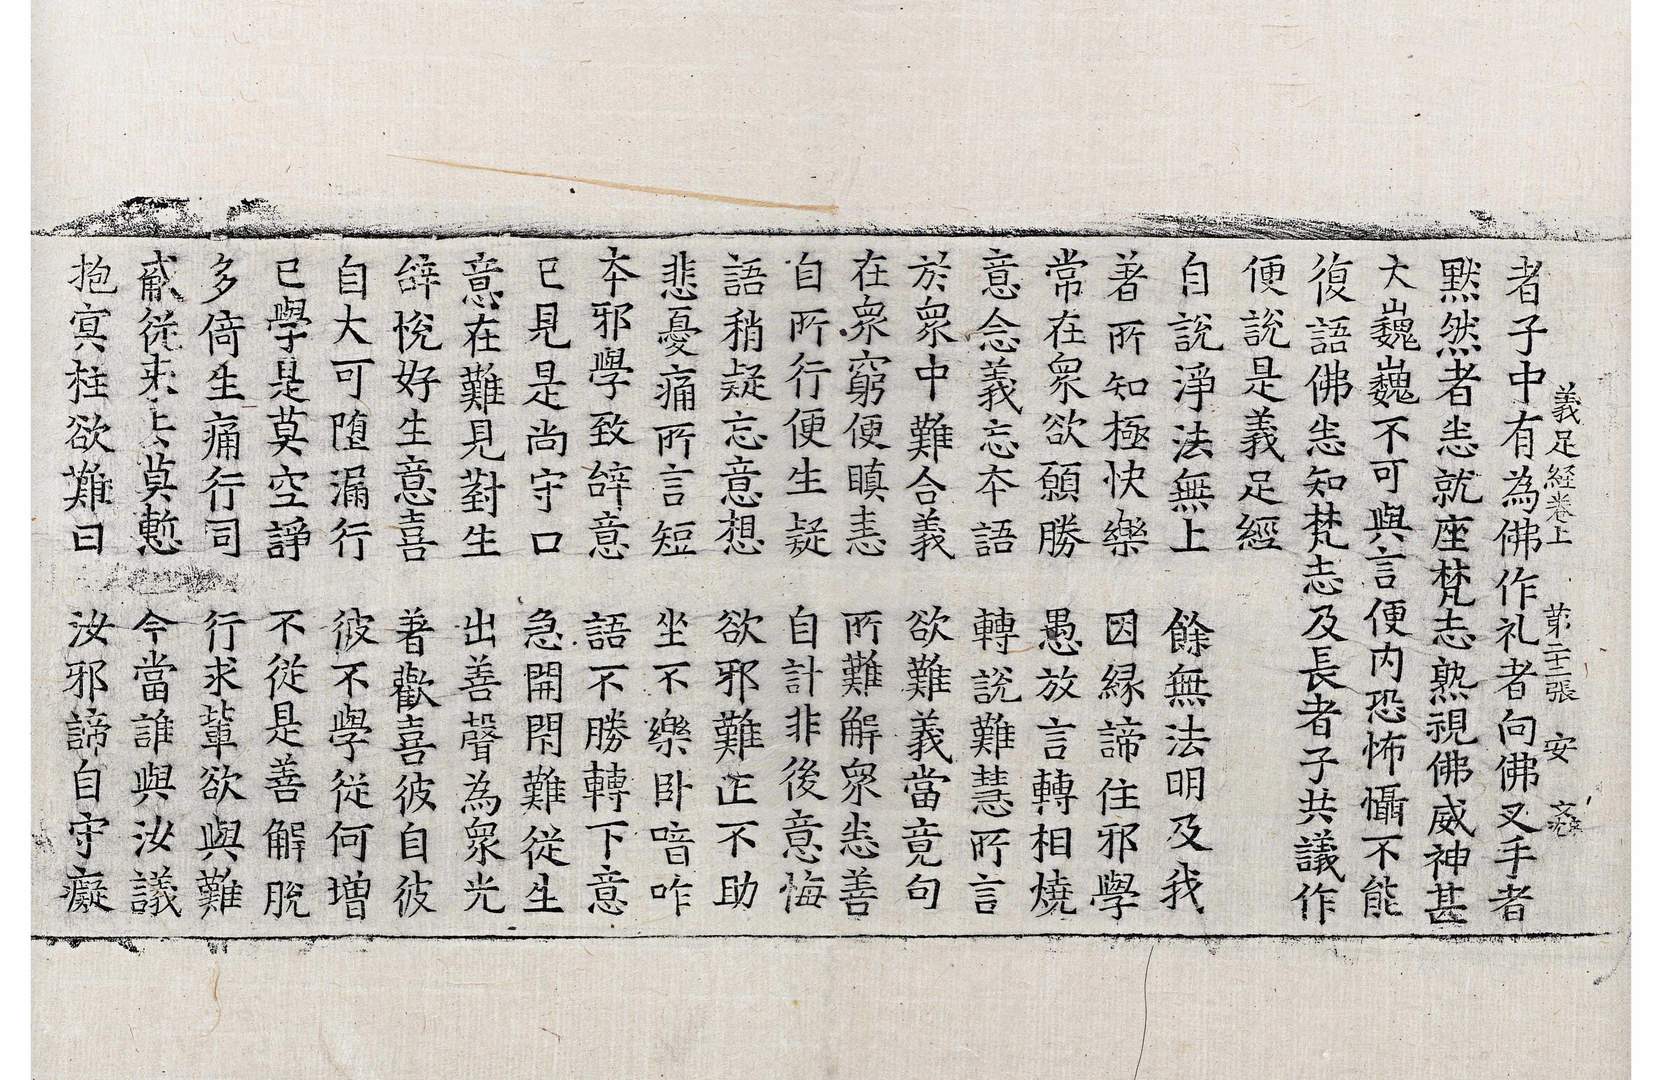 義足経卷上 苐二十二張 安
者子中有為佛作礼者向佛叉手者
黙然者悉就座梵志熟視佛威神甚
大巍巍不可與言便内恐怖懾不能
復語佛悉知梵志及長者子共議作
便說是義足經
自說淨法無上 餘無法明及我
著所知極快樂 因縁諦住邪學
常在衆欲願勝 愚放言轉相燒
意念義忘本語 轉說難慧所言
於衆中難合義 欲難義當竟句
在衆窮便瞋恚 所難解衆悉善
自所行便生疑 自計非後意悔
語稍疑忘意想 欲邪難正不助
悲憂痛所言短 坐不樂卧喑咋
本邪學致辝意 語不勝轉下意
已見是尚守口 急開閇難從生
意在難見對生 出善聲為衆光
辝悅好生意喜 著歡喜彼自彼
自大可墮漏行 彼不學從何増
已學是莫空諍 不從是善解脫
多倚生痛行司 行求輩欲與難
勇從来去莫慙 今當誰與汝議
抱冥柱欲難曰 汝邪諦自守癡